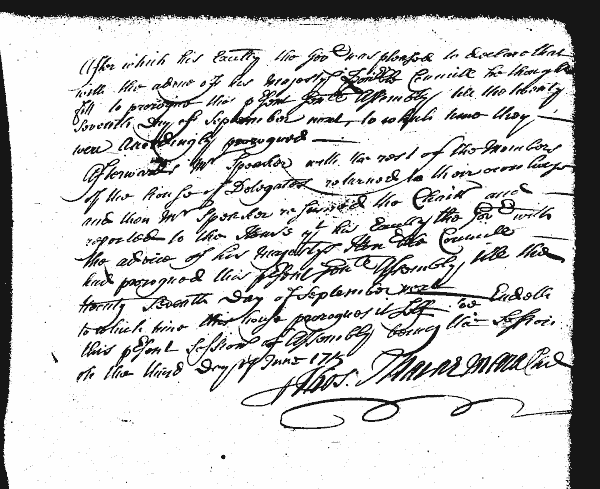 After which his Exclly the Govr was pleased to declare that
with the advice of his Majestys Honble Councill he thought
fitt to prorogue this psent Genll Assembly till the twenty
Seventh Day of September next, to which time they
were Accordingly prorogued
Afterwards Mr Speaker with the rest of the Members
of the house of Delegates returned to their own house
and then Mr Speaker resumed the Chair and
reported to the house yt his Exclly the Govr with
the advice of his Majestys Honble Councill
had prorogued this psent Genll Assembly till the
twenty Seventh Day of September next
to which time this house prorogues it Self
this psent Session of Assembly being Session
on the third Day of June 1715
Thos. Macnemara Cl